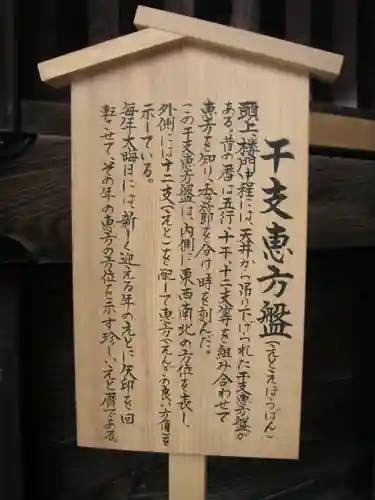 干支恵方盤(えとえほうばん)
頭上、楼門中程には、天井から吊り下げられた干支恵方盤が
ある。昔の暦は五行、十干、十二支等を組み合わせて
恵方を知り、季節を分け時を刻んだ。
この干支恵方盤は、内側に東西南北の方位を表し、
外側には十二支(えと)を配して恵方(えんぎの良い方角)を
示している。
毎年大晦日には、新しく迎える年のえとに矢印を回
転させて、その年の恵方の方位を示す珍しい、えと暦である。